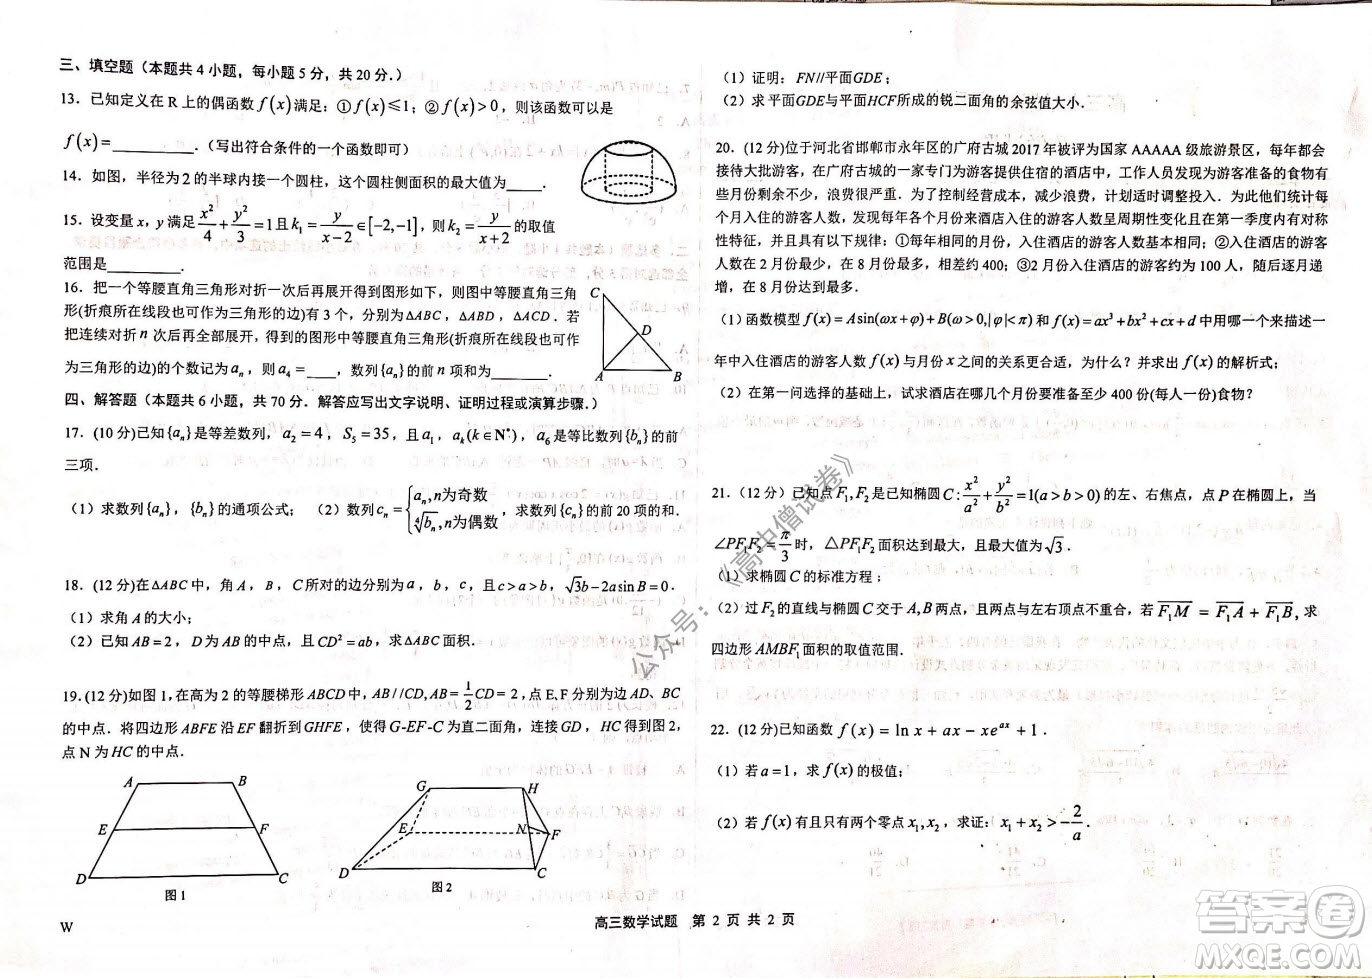 三、填空题（本题共 4 小题，每小题 5 分，共 20 分.）
13．已知定义在 R 上的偶函数 f(x) 满足：①f(x)≤1；②f(x)>0，则该函数可以是
f(x)=________．（写出符合条件的一个函数即可）
14．如图，半径为2的半球内接一个圆柱，这个圆柱侧面积的最大值为____．
15．设变量 x, y 满足 x²/4 + y²/3 = 1 且 k₁ = y/(x−2) ∈[−2,−1]，则 k₂ = y/(x+2) 的取值
范围是________．
16．把一个等腰直角三角形对折一次后再展开得到图形如下，则图中等腰直角三
角形(折痕所在线段也可作为三角形的边)有 3 个，分别为 △ABC，△ABD，△ACD．若
把连续对折 n 次后再全部展开，得到的图形中等腰直角三角形(折痕所在线段也可作
为三角形的边)的个数记为 aₙ，则 a₄=____，数列{aₙ}的前 n 项和为______．
C
D
A
B
四、解答题（本题共 6 小题，共 70 分．解答应写出文字说明、证明过程或演算步骤.）
17．(10 分)已知{aₙ}是等差数列，a₂=4，S₅=35，且 a₁，aₖ(k∈N*)，a₆是等比数列{bₙ}的前
三项．
（1）求数列{aₙ}，{bₙ}的通项公式；（2）数列 cₙ = { aₙ, n为奇数 ; ∜bₙ, n为偶数 ，求数列{cₙ}的前 20 项的和．
18．(12 分)在△ABC中，角 A，B，C所对的边分别为 a，b，c，且 c>a>b，√3b−2asinB=0．
（1）求角 A 的大小；
（2）已知 AB=2，D为AB的中点，且CD²=ab，求△ABC面积．
19．(12 分)如图 1，在高为 2 的等腰梯形 ABCD 中，AB//CD, AB=½CD=2，点 E、F 分别为 AD、BC
的中点．将四边形 ABFE 沿 EF 翻折到 GHFE，使得 G-EF-C 为直二面角，连接 GD，HC 得到图 2，
点 N 为 HC 的中点．
A
B
E
F
D
C
图 1
G
H
E
N
F
D
C
图 2
W
（1）证明：FN//平面GDE；
（2）求平面GDE与平面HCF所成的锐二面角的余弦值大小．
20．(12 分)位于河北省邯郸市永年区的广府古城 2017 年被评为国家 AAAAA 级旅游景区，每年都会
接待大批游客，在广府古城的一家专门为游客提供住宿的酒店中，工作人员发现为游客准备的食物有
些月份剩余不少，浪费很严重．为了控制经营成本，减少浪费，计划适时调整投入．为此他们统计每
个月入住的游客人数，发现每年各个月份来酒店入住的游客人数呈周期性变化且在第一季度内有对称
性特征，并且有以下规律：①每年相同的月份，入住酒店的游客人数基本相同；②入住酒店的游客
人数在 2 月份最少，在 8 月份最多，相差约 400；③2 月份入住酒店的游客约为 100 人，随后逐月递
增，在 8 月份达到最多．
（1）函数模型 f(x)=Asin(ωx+φ)+B(ω>0,|φ|<π) 和 f(x)=ax³+bx²+cx+d 中用哪一个来描述一
年中入住酒店的游客人数 f(x) 与月份 x 之间的关系更合适，为什么？并求出 f(x) 的解析式；
（2）在第一问选择的基础上，试求出酒店在哪几个月份要准备至少 400 份(每人一份)食物？
21．（12 分）已知点 F₁,F₂ 是已知椭圆 C: x²/a² + y²/b² = 1(a>b>0) 的左、右焦点，点 P 在椭圆上，当
∠PF₁F₂ = π/3 时，△PF₁F₂ 面积达到最大，且最大值为 √3．
（1）求椭圆 C 的标准方程；
（2）过 F₂ 的直线与椭圆 C 交于 A,B 两点，且两点与左右顶点不重合，若 F₁M = F₁A + F₁B，求
四边形 AMBF₁ 面积的取值范围．
22．(12 分)已知函数 f(x) = ln x + ax − xe^{ax} + 1．
（1）若 a=1，求 f(x) 的极值；
（2）若 f(x) 有且只有两个零点 x₁,x₂，求证：x₁+x₂ > −2/a．
高三数学试题 第 2 页 共 2 页
公众号：《高中僧试卷》
MXQE.COM